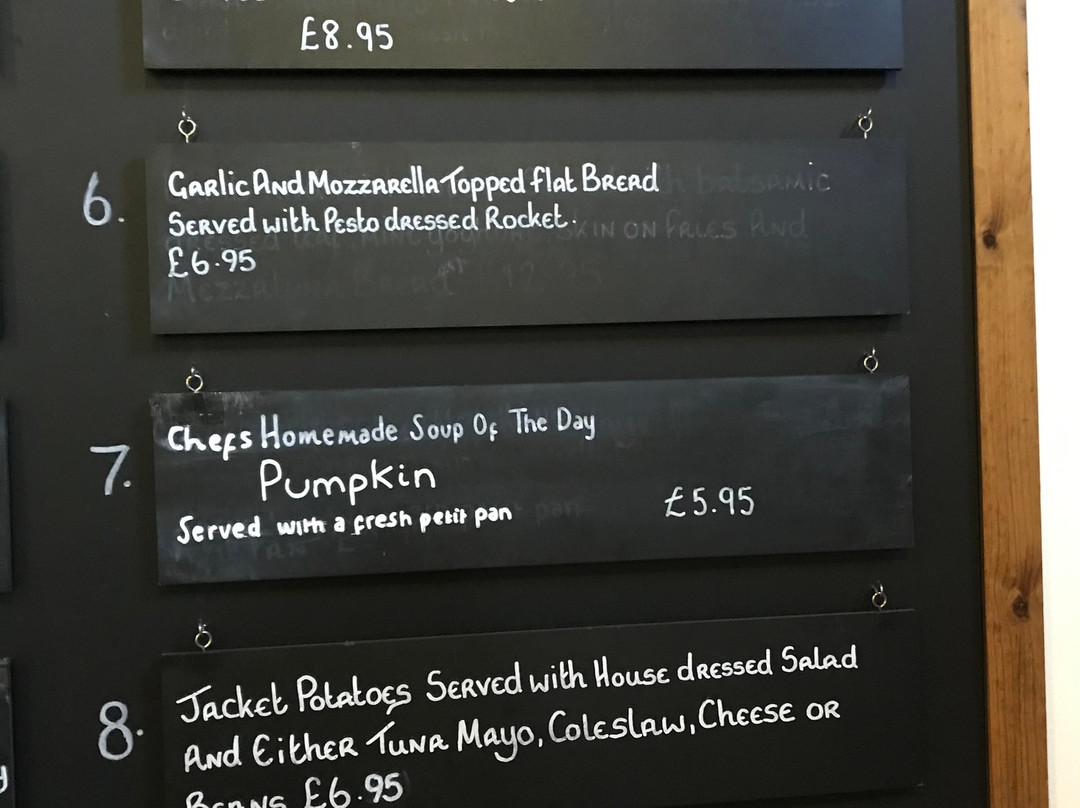 £8.95
6.
Garlic And Mozzarella Topped flat Bread
Served with Pesto dressed Rocket.
£6.95
7.
Chefs Homemade Soup Of The Day
Pumpkin
Served with a fresh petit pan
£5.95
8.
Jacket Potatoes Served with House dressed Salad
And Either Tuna Mayo, Coleslaw, Cheese or
Beans £6.95